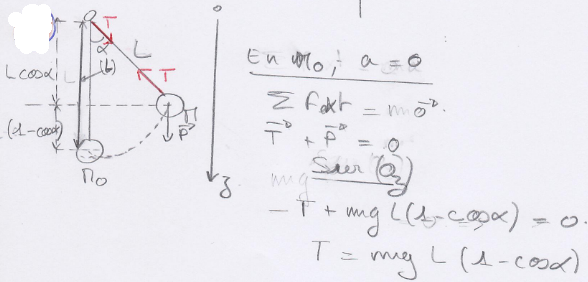 O T
α
L
(b)
T
L cosα
L
(1-cosα)
M
P
M₀
z
En M₀, a = 0
Σ Fext = m a
T + P = 0
mg Sur (Oz)
- T + mg L (1-cosα) = 0.
T = mg L (1-cosα)